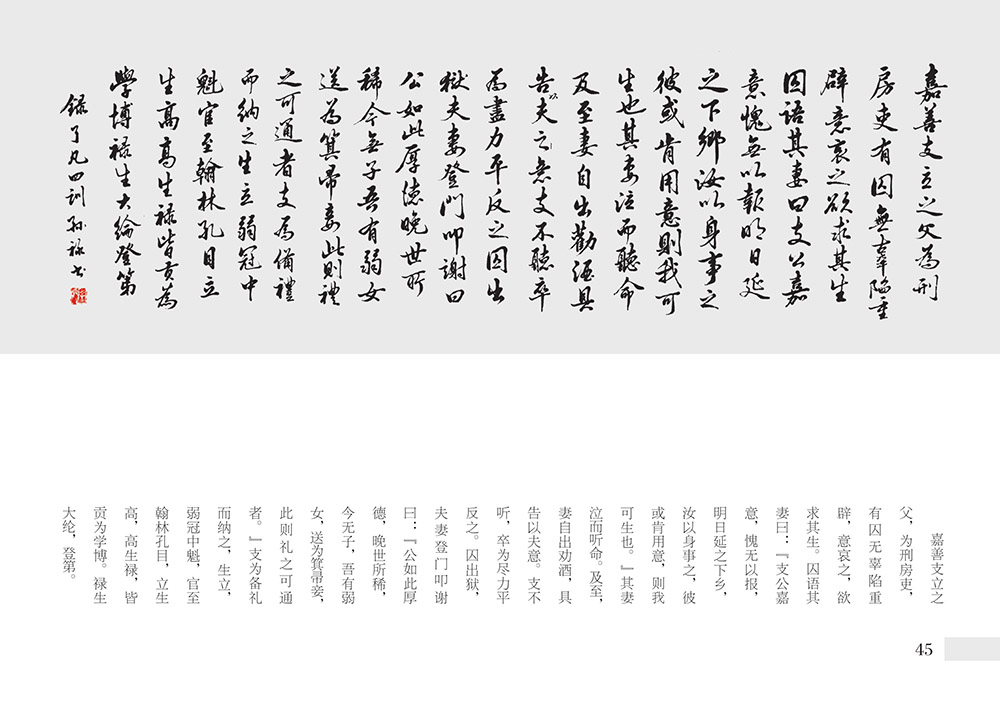 嘉善支立之父為刑
房吏有囚無辜陷重
辟意哀之欲求其生
囚語其妻曰支公嘉
意愧無以報明日延
之下鄉汝以身事之
彼或肯用意則我可
生也其妻泣而聽命
及至妻自出勸酒具
告以夫之意支不聽卒
為盡力平反之囚出
獄夫妻登門叩謝曰
公如此厚德晚世所
稀今無子吾有弱女
送為箕帚妾此則禮
之可通者支為備禮
而納之生立弱冠中
魁官至翰林孔目立
生高高生祿皆貢為
學博祿生大綸登第
錄了凡四訓孫祿书
嘉善支立之
父，为刑房吏，
有囚无辜陷重
辟，意哀之，欲
求其生。囚语其
妻曰：『支公嘉
意，愧无以报，
明日延之下乡，
汝以身事之，彼
或肯用意，则我
可生也。』其妻
泣而听命。及至，
妻自出劝酒，具
告以夫意。支不
听，卒为尽力平
反之。囚出狱，
夫妻登门叩谢
曰：『公如此厚
德，晚世所稀，
今无子，吾有弱
女，送为箕帚妾，
此则礼之可通
者。』支为备礼
而纳之，生立，
弱冠中魁，官至
翰林孔目，立生
高，高生禄，皆
贡为学博。禄生
大纶，登第。
45